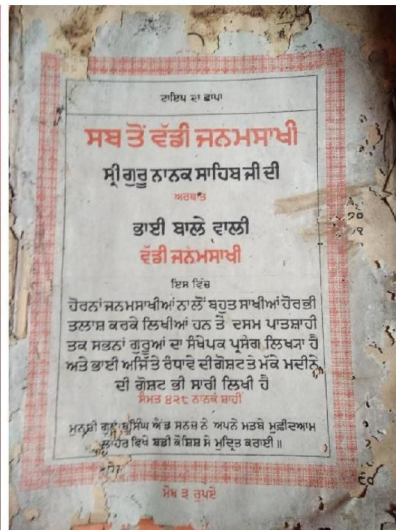 ਟਾਇਪ ਦਾ ਛਾਪਾ
ਸਬ ਤੋਂ ਵੱਡੀ ਜਨਮਸਾਖੀ
ਸ੍ਰੀ ਗੁਰੂ ਨਾਨਕ ਸਾਹਿਬ ਜੀ ਦੀ
ਅਰਥਾਤ
ਭਾਈ ਬਾਲੇ ਵਾਲੀ
ਵੱਡੀ ਜਨਮਸਾਖੀ
ਇਸ ਵਿੱਚ
ਹੋਰਨਾਂ ਜਨਮਸਾਖੀਆਂ ਨਾਲੋਂ ਬਹੁਤ ਸਾਖੀਆਂ ਹੋਰ ਭੀ
ਤਲਾਸ਼ ਕਰਕੇ ਲਿਖੀਆਂ ਹਨ ਤੇ ਦਸਮ ਪਾਤਸ਼ਾਹੀ
ਤਕ ਸਭਨਾਂ ਗੁਰੂਆਂ ਦਾ ਸੰਖੇਪਕ ਪ੍ਰਸੰਗ ਲਿਖਨਾ ਹੈ
ਅਤੇ ਭਾਈ ਅਜਿੱਤੇ ਰੰਧਾਵੇ ਦੀ ਗੋਸ਼ਟ ਤੇ ਮੱਕੇ ਮਦੀਨੇ
ਦੀ ਗੋਸ਼ਟ ਭੀ ਸਾਰੀ ਲਿਖੀ ਹੈ
ਸੰਮਤ ੪੨੮ ਨਾਨਕ ਸ਼ਾਹੀ
ਮੁਨਸ਼ੀ ਸਿੰਘ ਐਂਡ ਸਨਜ਼ ਨੇ ਅਪਨੇ ਮਤਬੇ ਮੁਫ਼ੀਦਿਆਮ
ਲਾਹੌਰ ਵਿਖੇ ਬਡੀ ਕੋਸ਼ਿਸ਼ ਸੇ ਮੁਦ੍ਰਿਤ ਕਰਾਈ ॥
ਮੋਖ ੩ ਰੁਪਏ